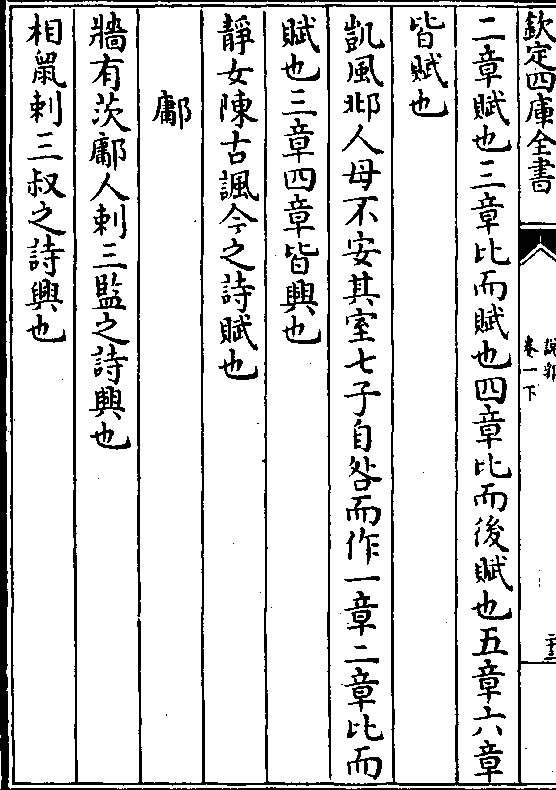 欽定四庫全書
說郛
卷一下
二章賦也三章比而賦也四章比而後賦也五章六章
皆賦也
凱風邶人母不安其室七子自咎而作一章二章比而
賦也三章四章皆興也
靜女陳古諷今之詩賦也
鄘
牆有茨鄘人刺三監之詩興也
相鼠刺三叔之詩興也